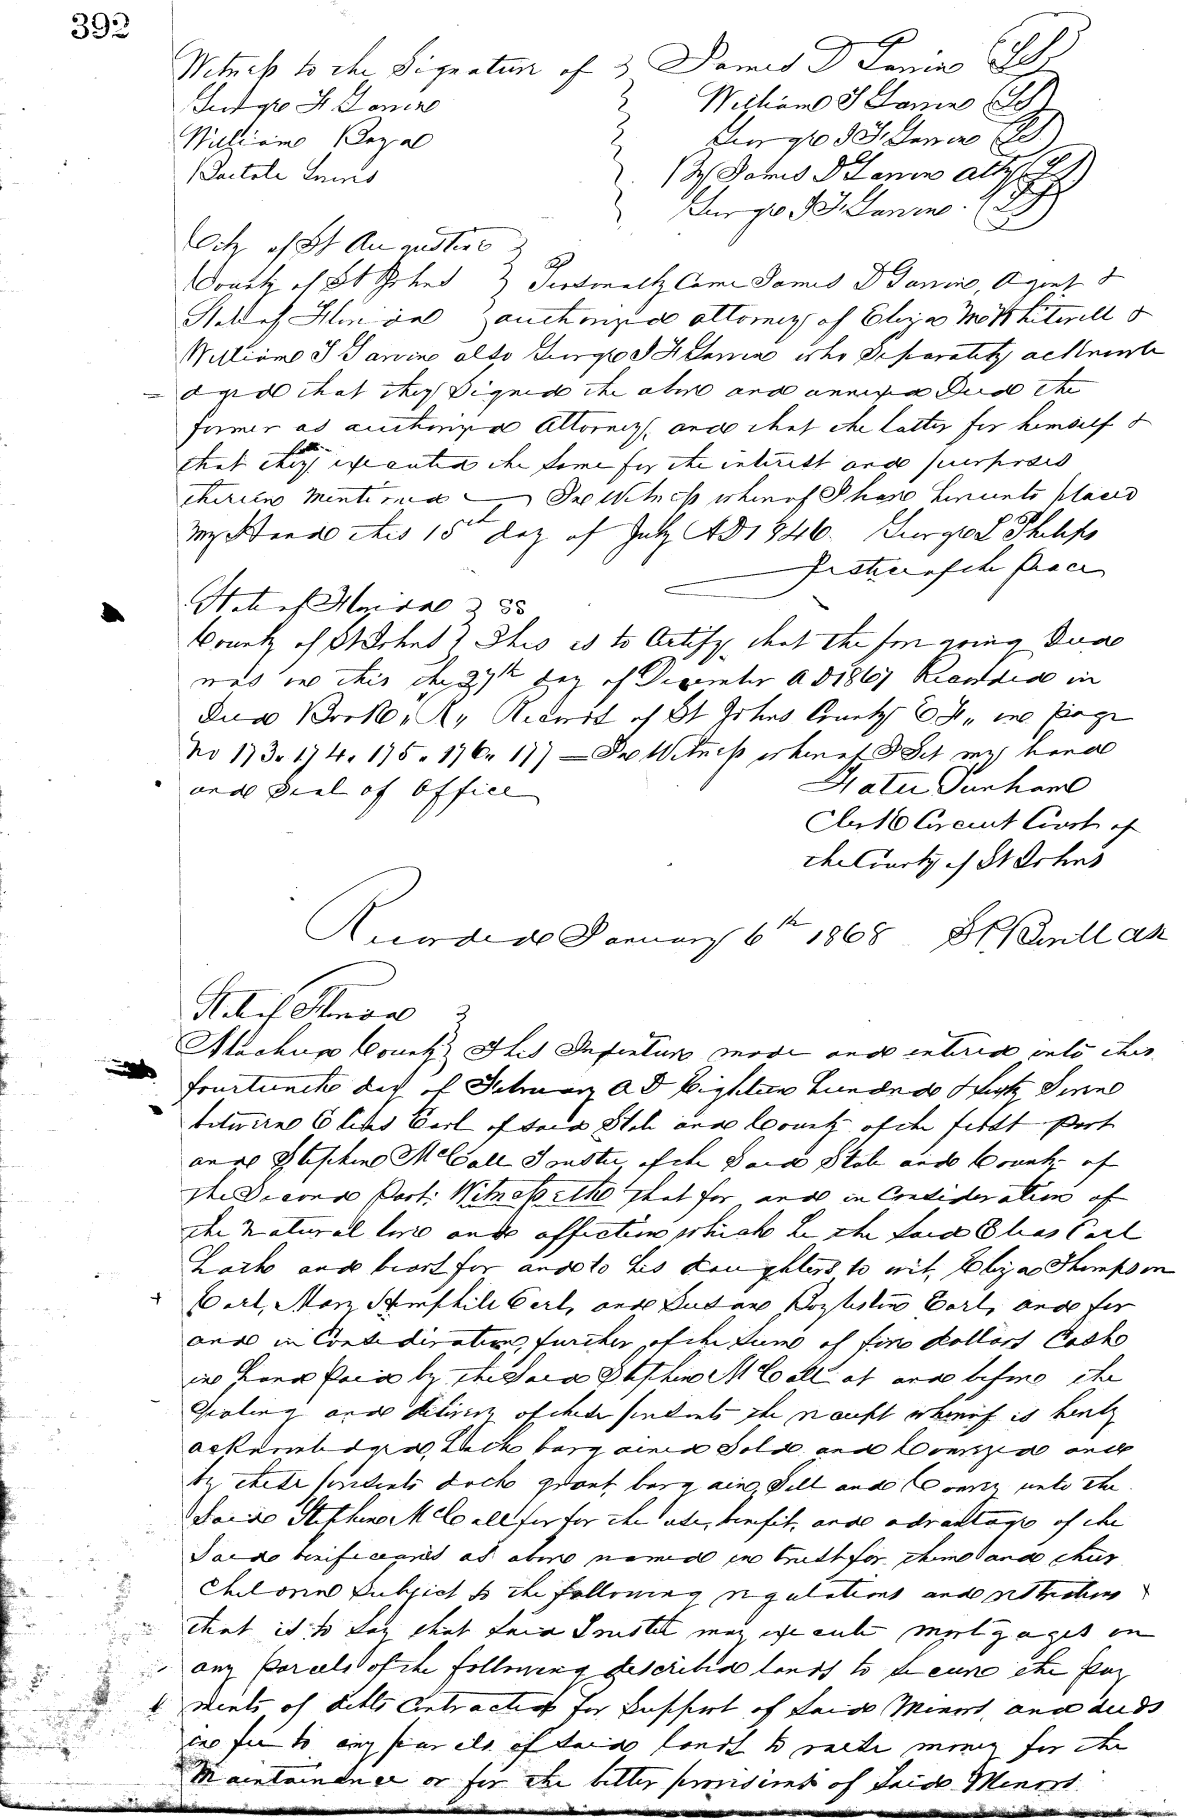 392
Witness to the Signature of } James D Garvin (LS)
George H Garvin } William J Garvin (LS)
William } George J F Garvin (LS)
} By James D Garvin atty (LS)
} George J F Garvin (LS)
City of St Augustine }
County of St Johns } Personally Came James D Garvin, Agent &
State of Florida } authorized attorney of Eliza M Whitwell &
William J Garvin also George J F Garvin who Separately acknowle
=dged that they Signed the above and annexed Deed the
former as authorized Attorney, and that the latter for himself &
that they executed the same for the interest and purposes
therein mentioned — In Witness whereof I have hereunto placed
my Hand this 15th day of July AD 1846. George L Phillips
Justice of the Peace
State of Florida } SS
County of St Johns } This is to Certify that the foregoing Deed
was on this the 27th day of December AD 1867 Recorded in
Deed Book "R" Records of St Johns County E F, on Page
No 173. 174. 175. 176. 177 — In Witness whereof I Set my hand
and Seal of Office
Clerk Circuit Court of
the County of St Johns
Recorded January 6th 1868
State of Florida }
Alachua County } This Indenture made and entered into this
fourteenth day of February AD Eighteen hundred & Sixty Seven
between Elias Earl of said State and County of the first Part
and Stephen McCall Trustee of the Said State and County of
the Second Part: Witnesseth that for and in Consideration of
the natural love and affection which he the said Elias Earl
hath and beart for and to his daughters to wit, Eliza Thompson
Earl, Mary Hemphill Earl, and Susan Earl, and for
and in Consideration, further of the Sum of five dollars Cash
in hand Paid by the Said Stephen McCall at and before the
Sealing and delivery of these presents the receipt whereof is hereby
acknowledged, hath bargained Sold and Conveyed and
by these presents doth grant, bargain, Sell and Convey unto the
Said Stephen McCall for for the use, benefit, and advantage of the
Said benificiaries as above named in trust for them and their
Children Subject to the following regulations and restrictions
that is to Say that said Trustee may execute mortgages on
any Parcels of the following described lands to secure the Pay
ments of debts Contracted for Support of Said Minors, and deeds
in fee to any parcels of said lands to raise money for the
Maintainance or for the better provisions of Said Minors